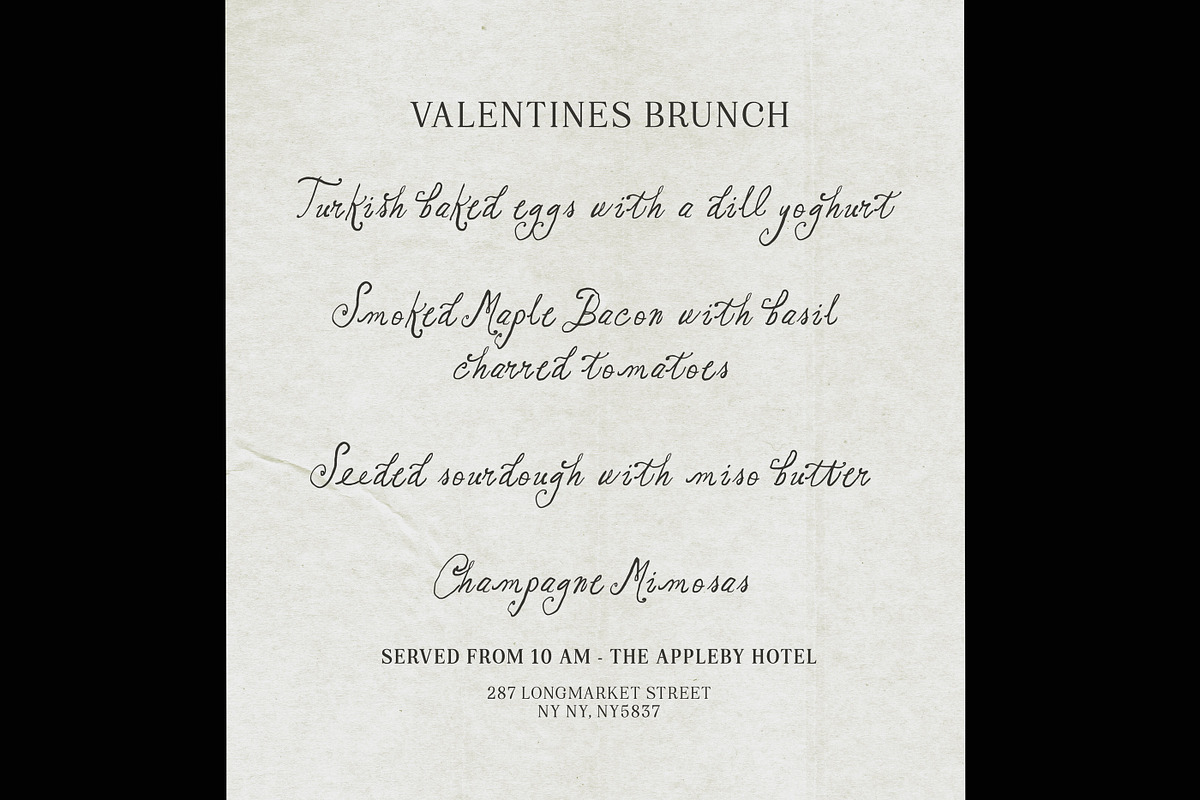 VALENTINES BRUNCH
Turkish baked eggs with a dill yoghurt
Smoked Maple Bacon with basil
charred tomatoes
Seeded sourdough with miso butter
Champagne Mimosas
SERVED FROM 10 AM - THE APPLEBY HOTEL
287 LONGMARKET STREET
NY NY, NY5837